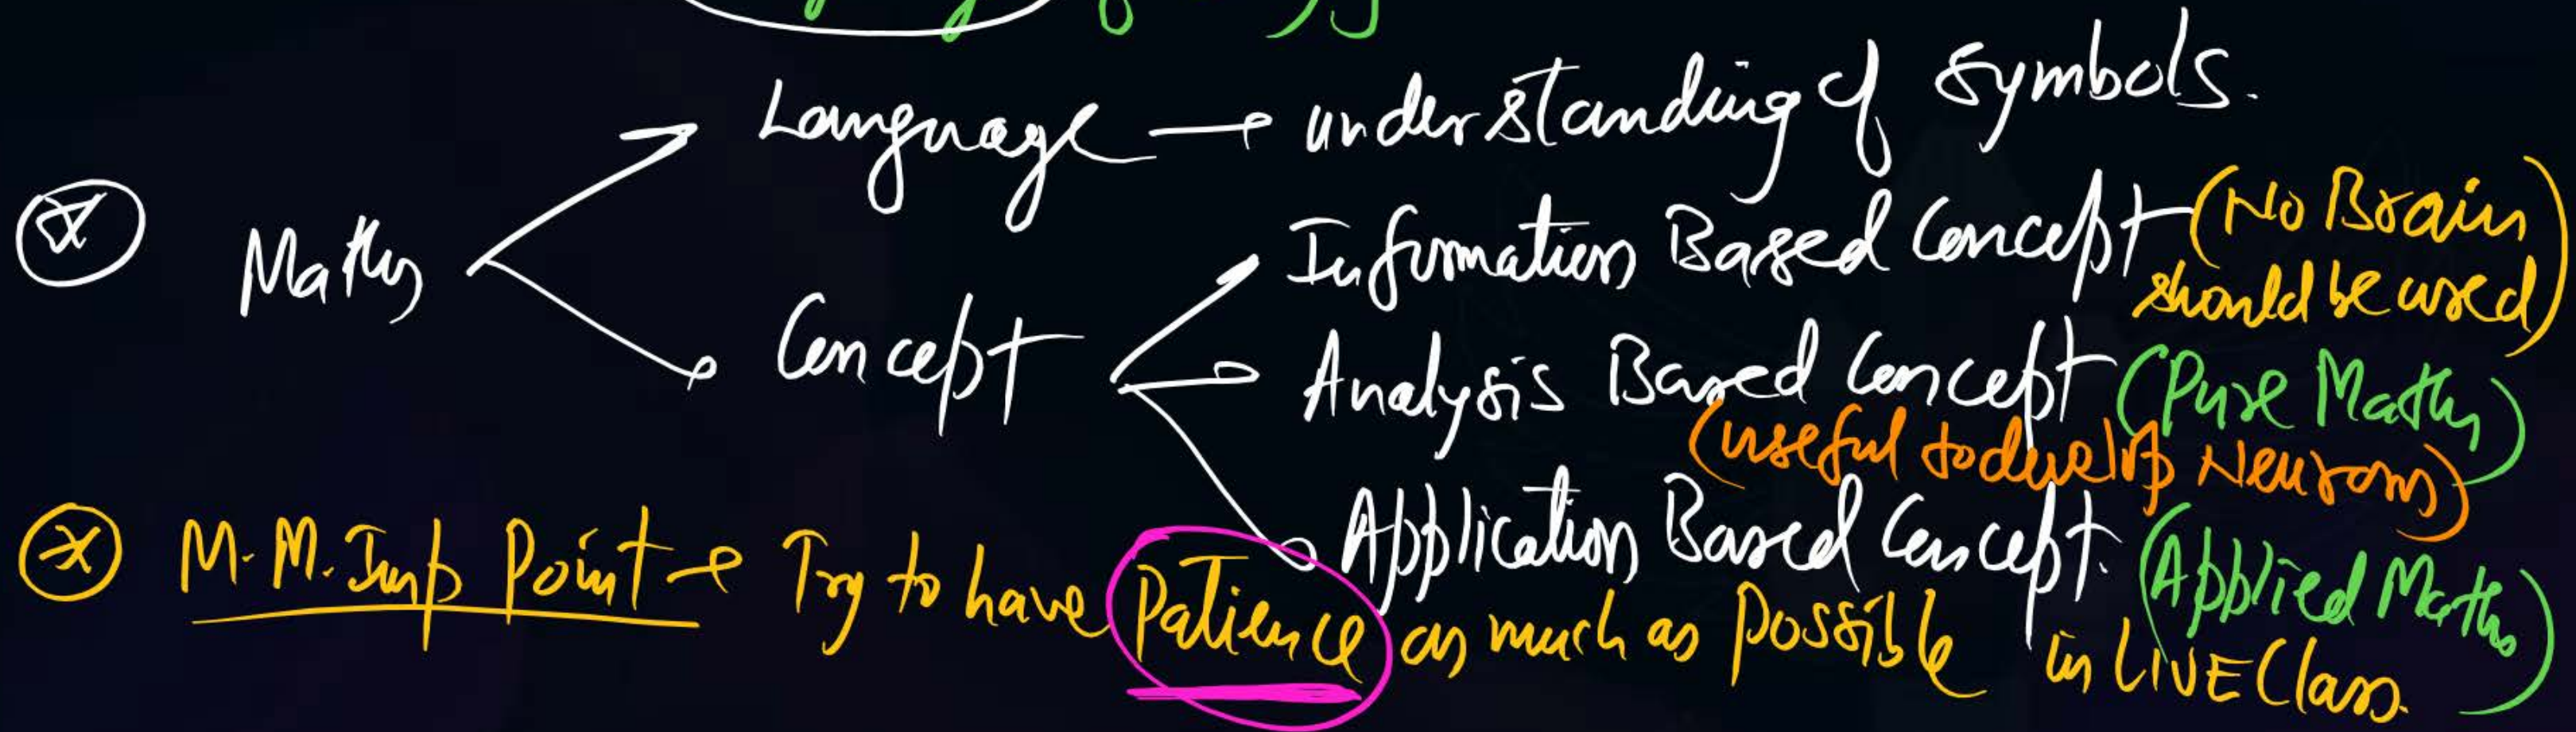 Maths
Language → understanding of symbols.
Concept
Information Based Concept (No Brain
should be used)
Analysis Based Concept (Pure Maths)
(useful to develop Neurons)
Application Based Concept. (Applied Maths)
M.M.Imp Point → Try to have Patience as much as possible in LIVE Class.